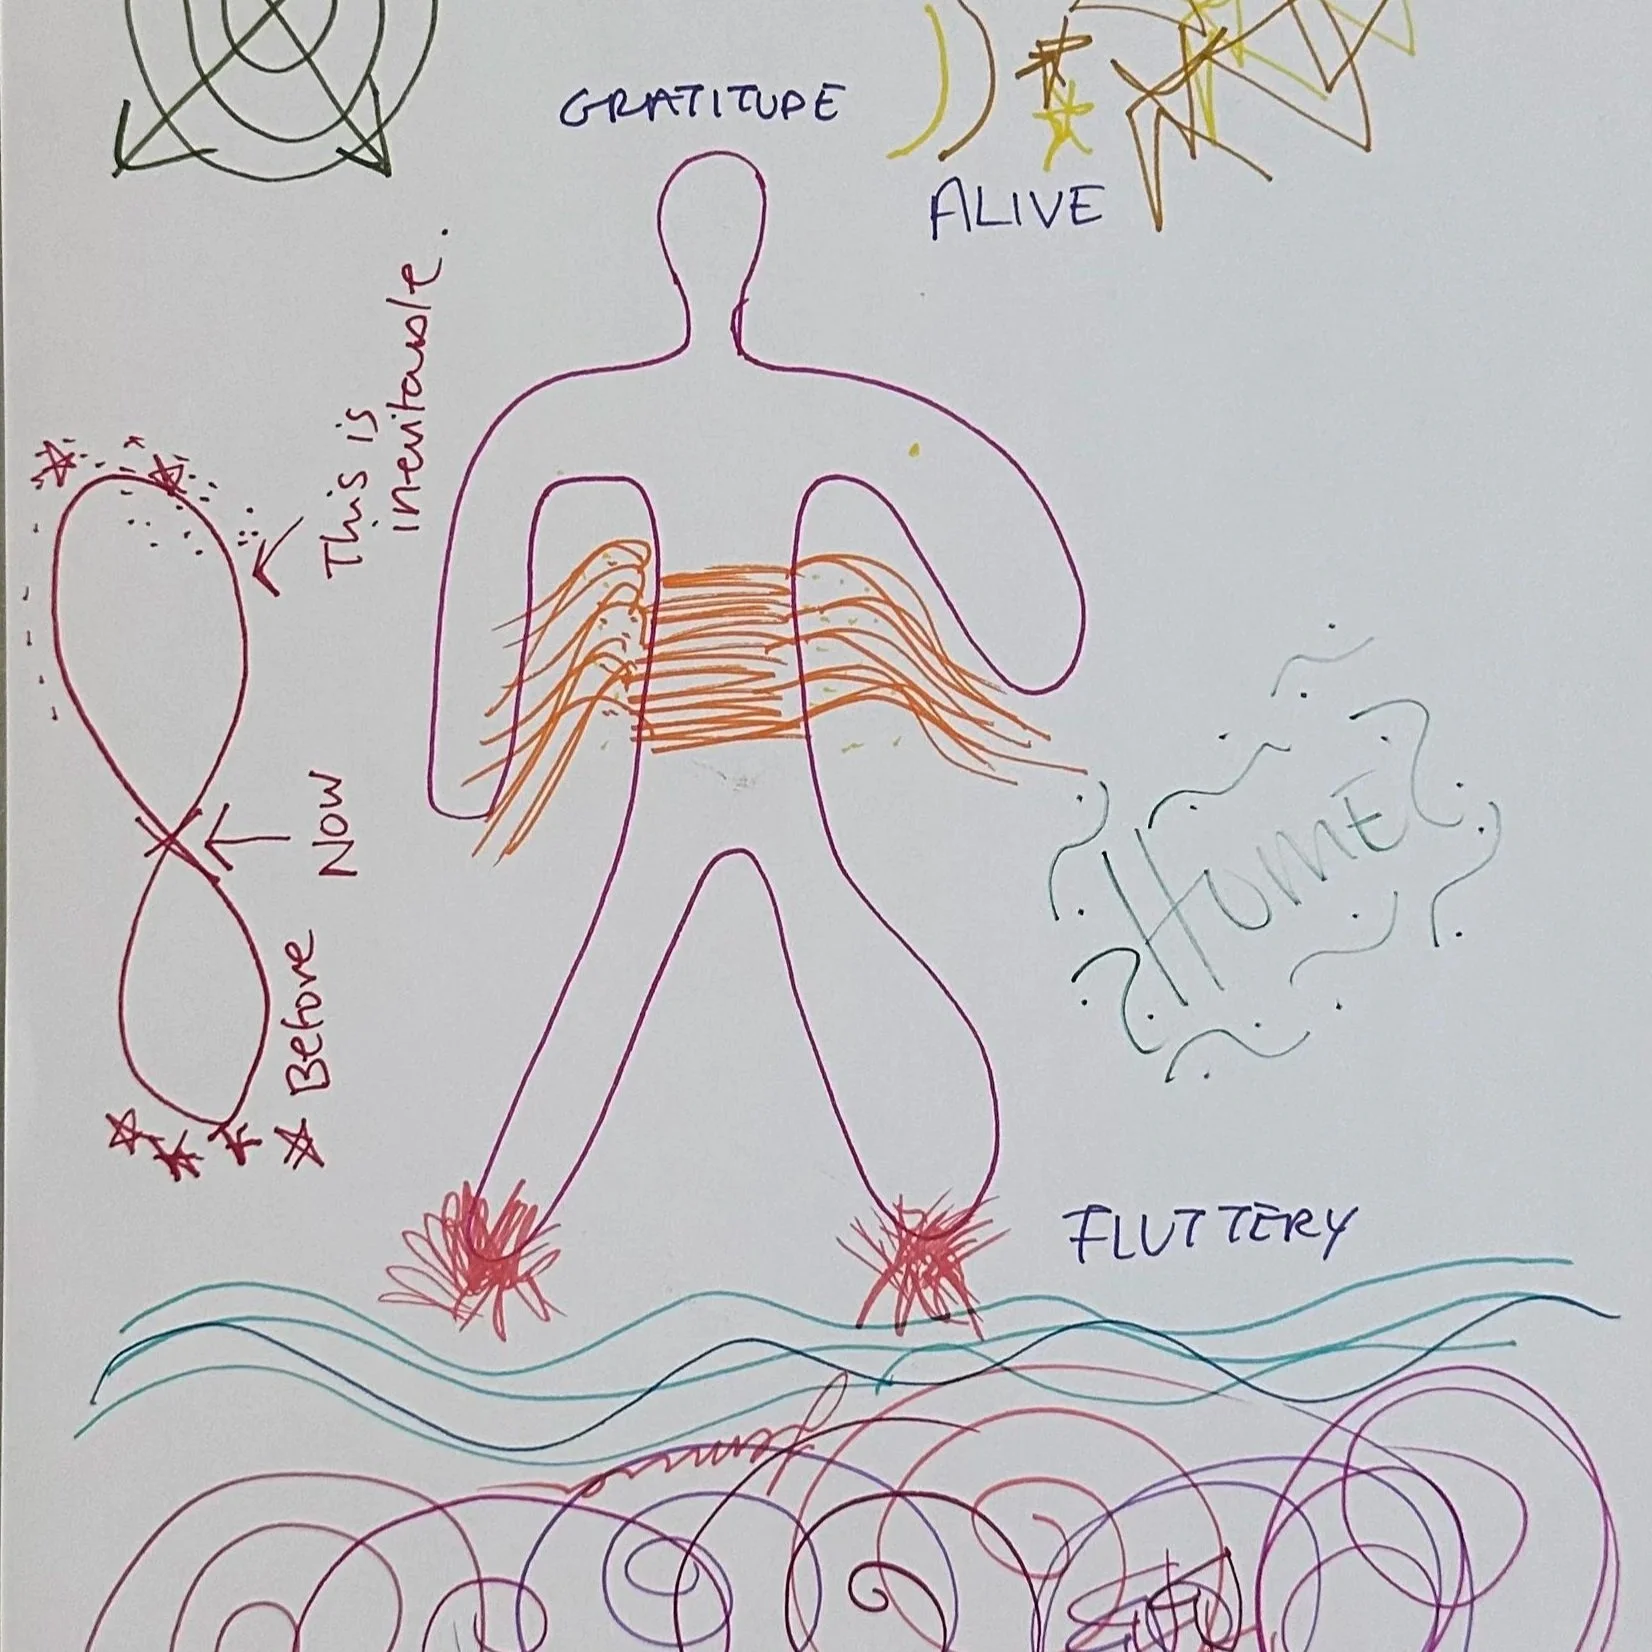 GRATITUDE
ALIVE
This is
inevitable.
Now
Before
?Home?
FLUTTERY